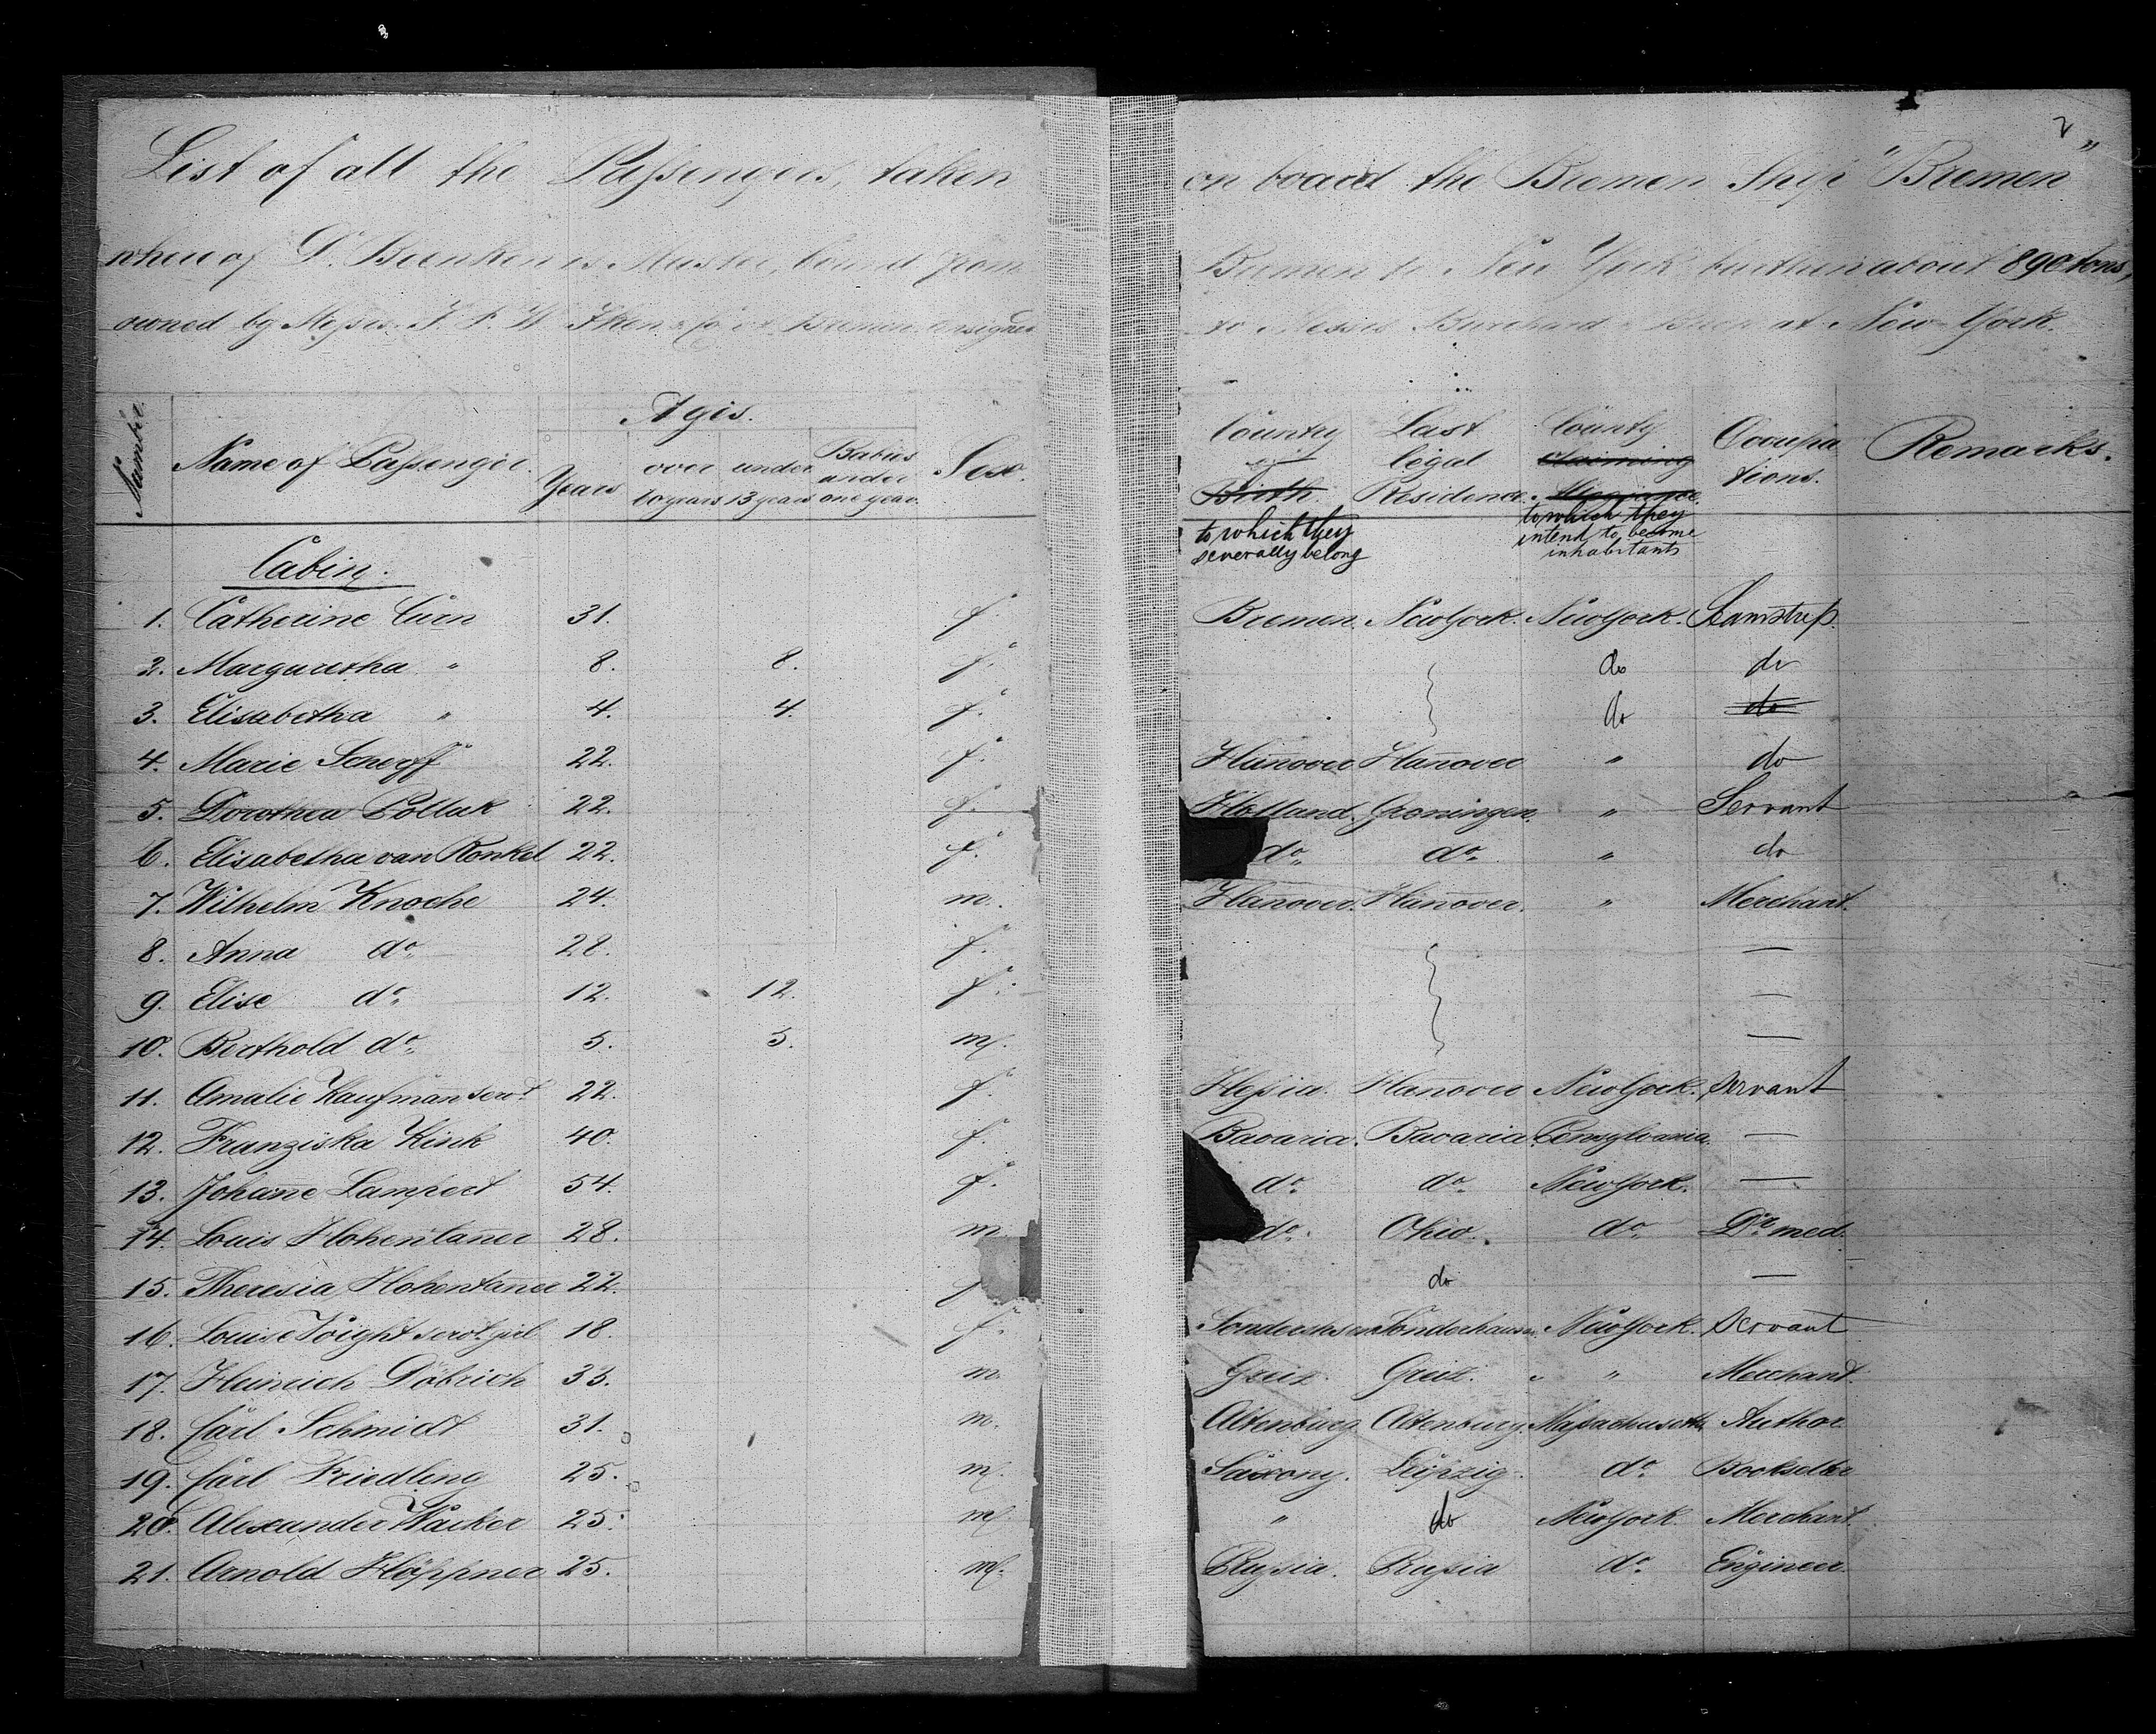 2
List of all the Passengers, taken on board the Bremen Ship "Bremen"
whereof D. Beenken is Master, bound from Bremen to New York burthen about 890 tons,
owned by Messrs. of Bremen consigned to Messrs Burchard & at New-York.
Number. Name of Passenger. Ages. Years over 60 years under 13 years Babies under one year. Sex. Country of Birth. to which they severally belong Last legal Residence. County claiming Allegiance. to which they intend to become inhabitants Occupations. Remarks.
Cabin.
1. Catherine Cürn 31. f. Bremen. New York. New York. Seamstress.
2. Margaretha " 8. 8. f. do do
3. Elisabetha " 4. 4. f. do do
4. Marie Scherff 22. f. Hannover Hannover " do
5. Dorothea Polluk 22. f. Holland. Groningen. " Servant
6. Elisabetha van Ronkel 22. f. do. do. " do
7. Wilhelm Knoche 24. m. Hannover. Hannover. " Merchant.
8. Anna do. 28. f. —
9. Elise do. 12. 12. f. —
10. Berthold do. 5. 5. m. —
11. Amalie Kaufmann servt 22. f. Hessia. Hannover New York. Servant
12. Franziska Kink 40. f. Bavaria. Bavaria Pensylvania. —
13. Johanne Lampert 54. f. do. do. New York. —
14. Louis Hohentanner 28. m. do. Ohio. do. Dr. med.
15. Theresia Hohentanner 22. f do —
16. Louise Voight servt girl 18. f. Sondershsen Sonderhausen. New York. Servant
17. Heinrich Döbrich 33. m. Greiz. Greiz. " " Merchant.
18. Carl Schmidt 31. m. Altenburg. Altenburg. Massachusetts Author
19. Carl Friedling 25. m. Saxony. Leipzig. do. Bookseller
20. Alexander Wacker 25. m. " do New York Merchant.
21. Arnold Höppner 25. m. Prussia. Prussia do. Engineer.